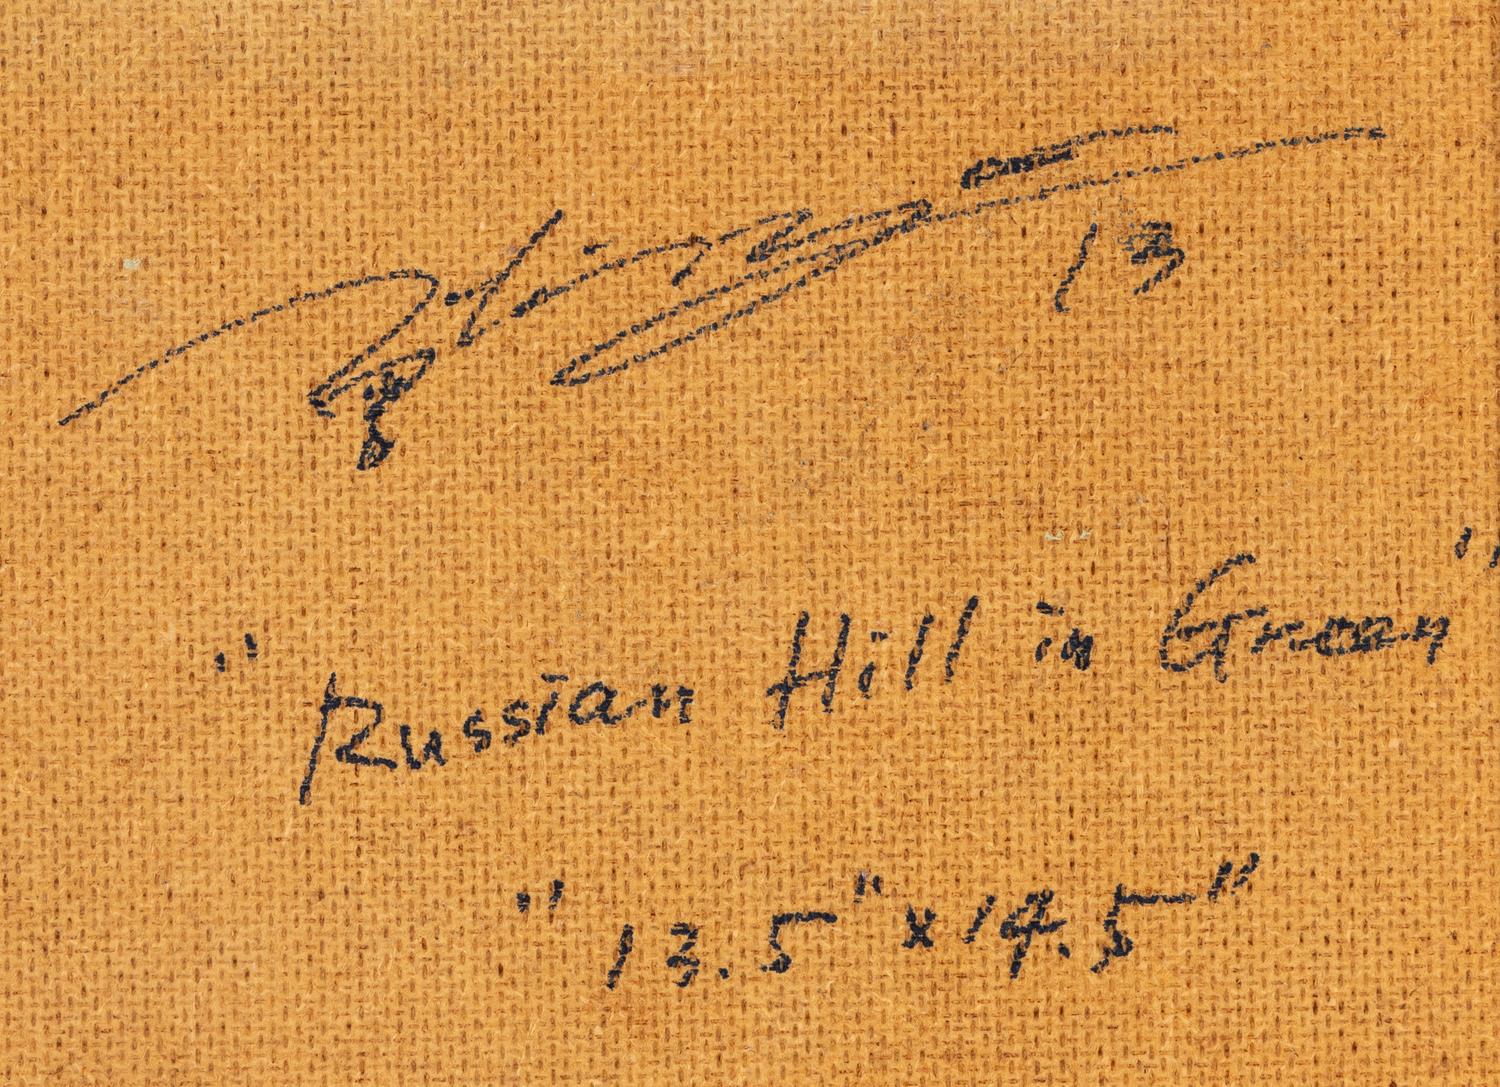 13
"Russian Hill in Green"
"13.5" x 19.5"